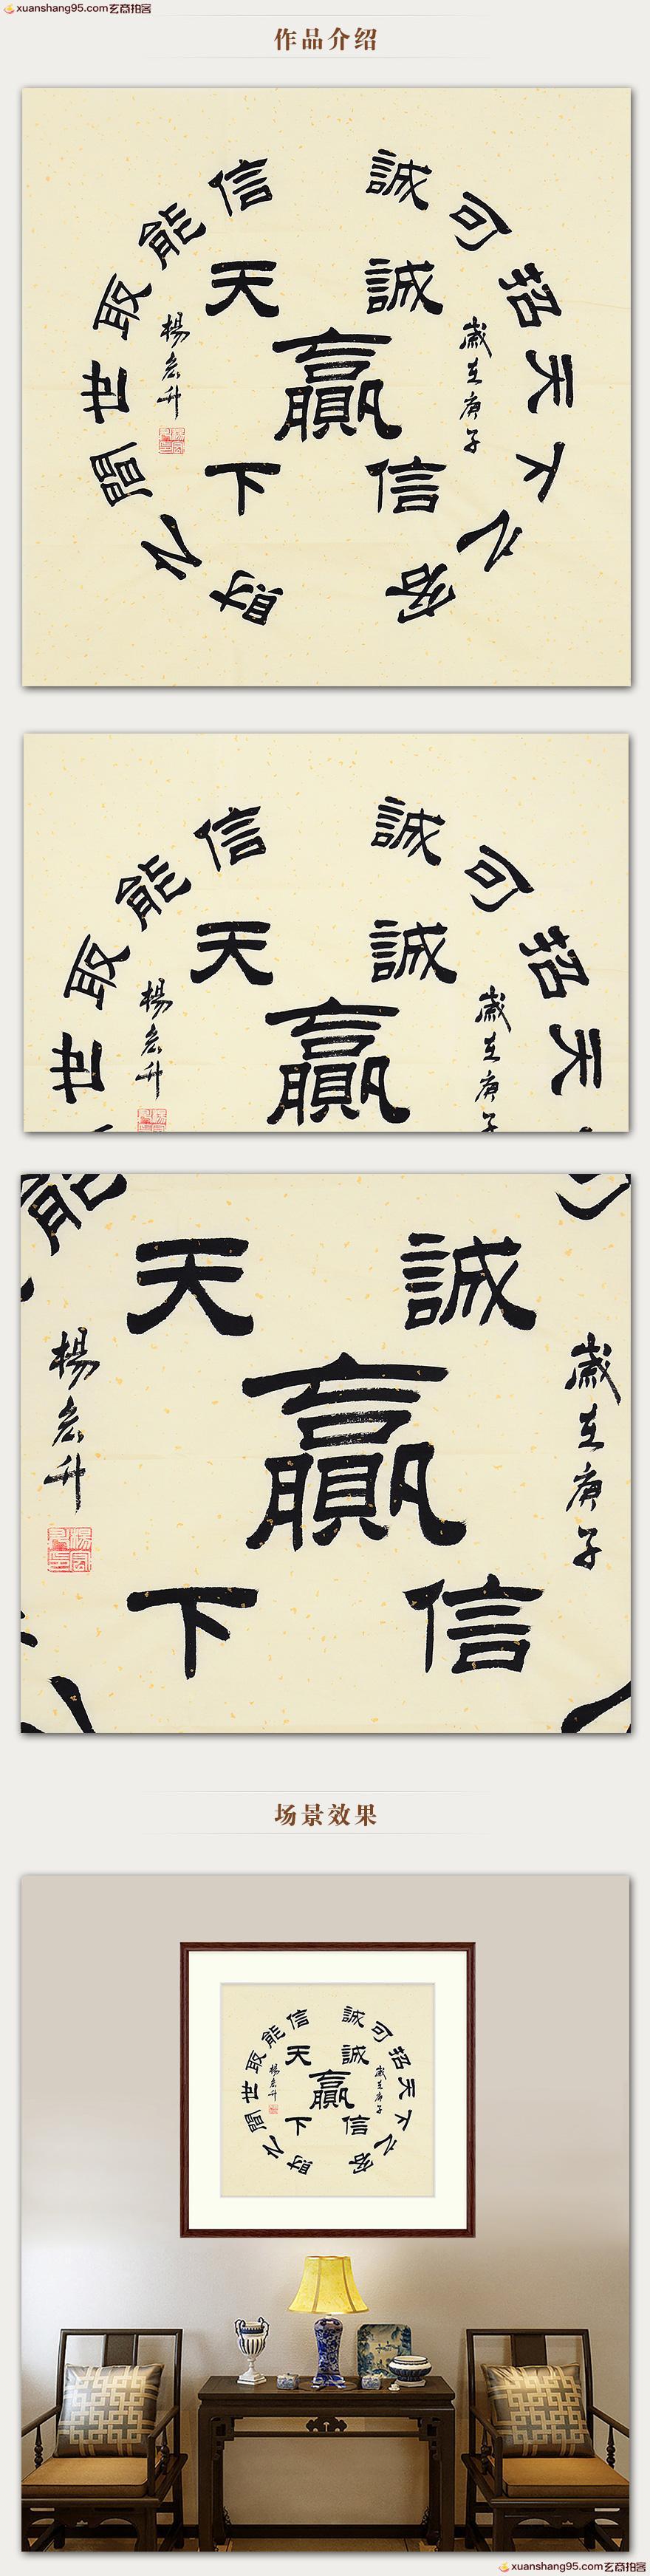 xuanshang95.com玄商拍客
作品介绍
誠可招天下之客
信能取世間之財
誠信
贏
天下
歲在庚子
楊宏升
信
能
取
世
誠
可
招
天
天
誠
贏
楊宏升
歲在庚子
能
可
天
誠
贏
下
信
楊宏升
歲在庚子
场景效果
誠可招天下之客
信能取世間之財
誠信
贏
天下
歲在庚子
楊宏升
xuanshang95.com玄商拍客